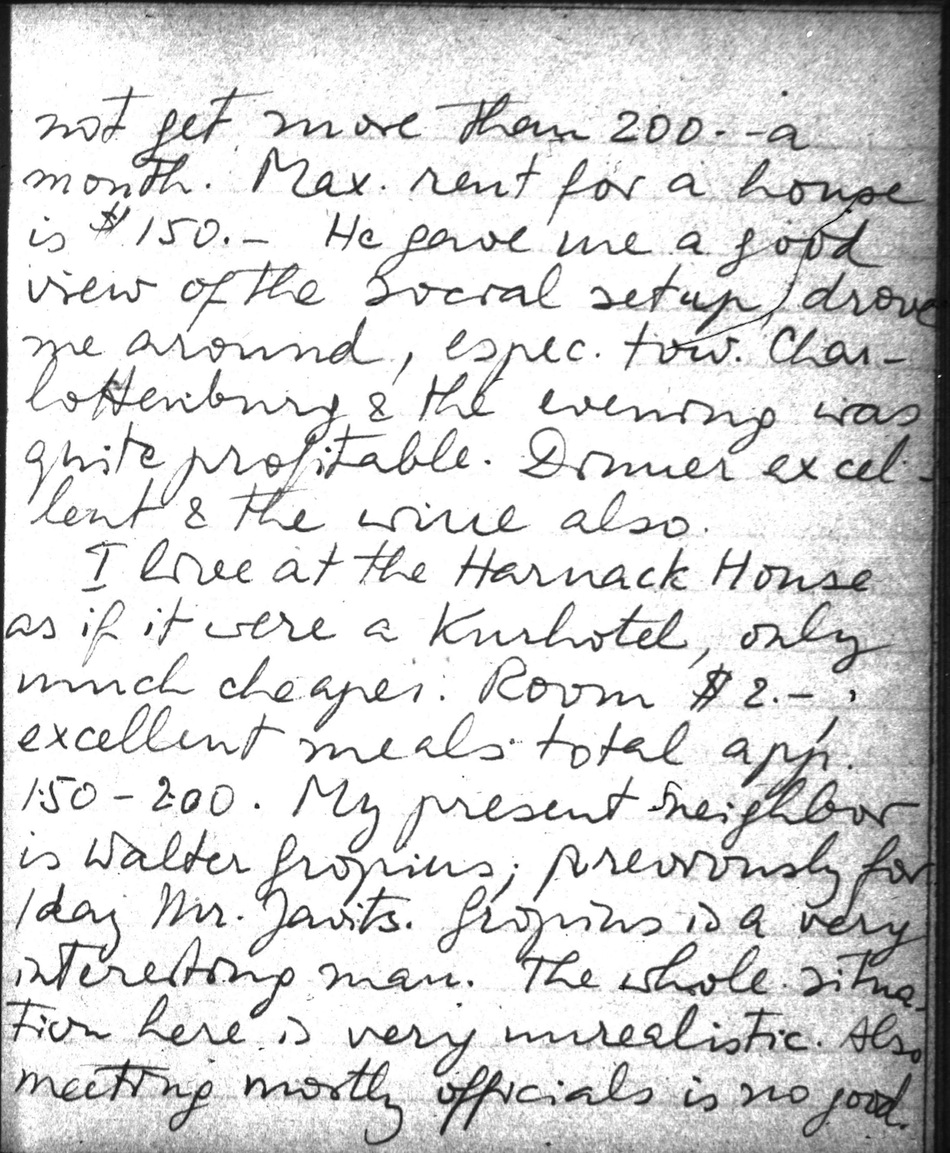 not get more than 200.- a
month. Max. rent for a house
is $150.- He gave me a good
view of the social setup, drove
me around, espec. tow. Char-
lottenburg & the evening was
quite profitable. Dinner excel-
lent & the wine also.
I live at the Harnack House
as if it were a Kurhotel, only
much cheaper. Room $2.-;
excellent meals total app.
150-200. My present neighbor
is Walter Gropius; previously for
1 day Mr. Javits. Gropius is a very
interesting man. The whole situa-
tion here is very unrealistic. Also
meeting mostly officials is no good.